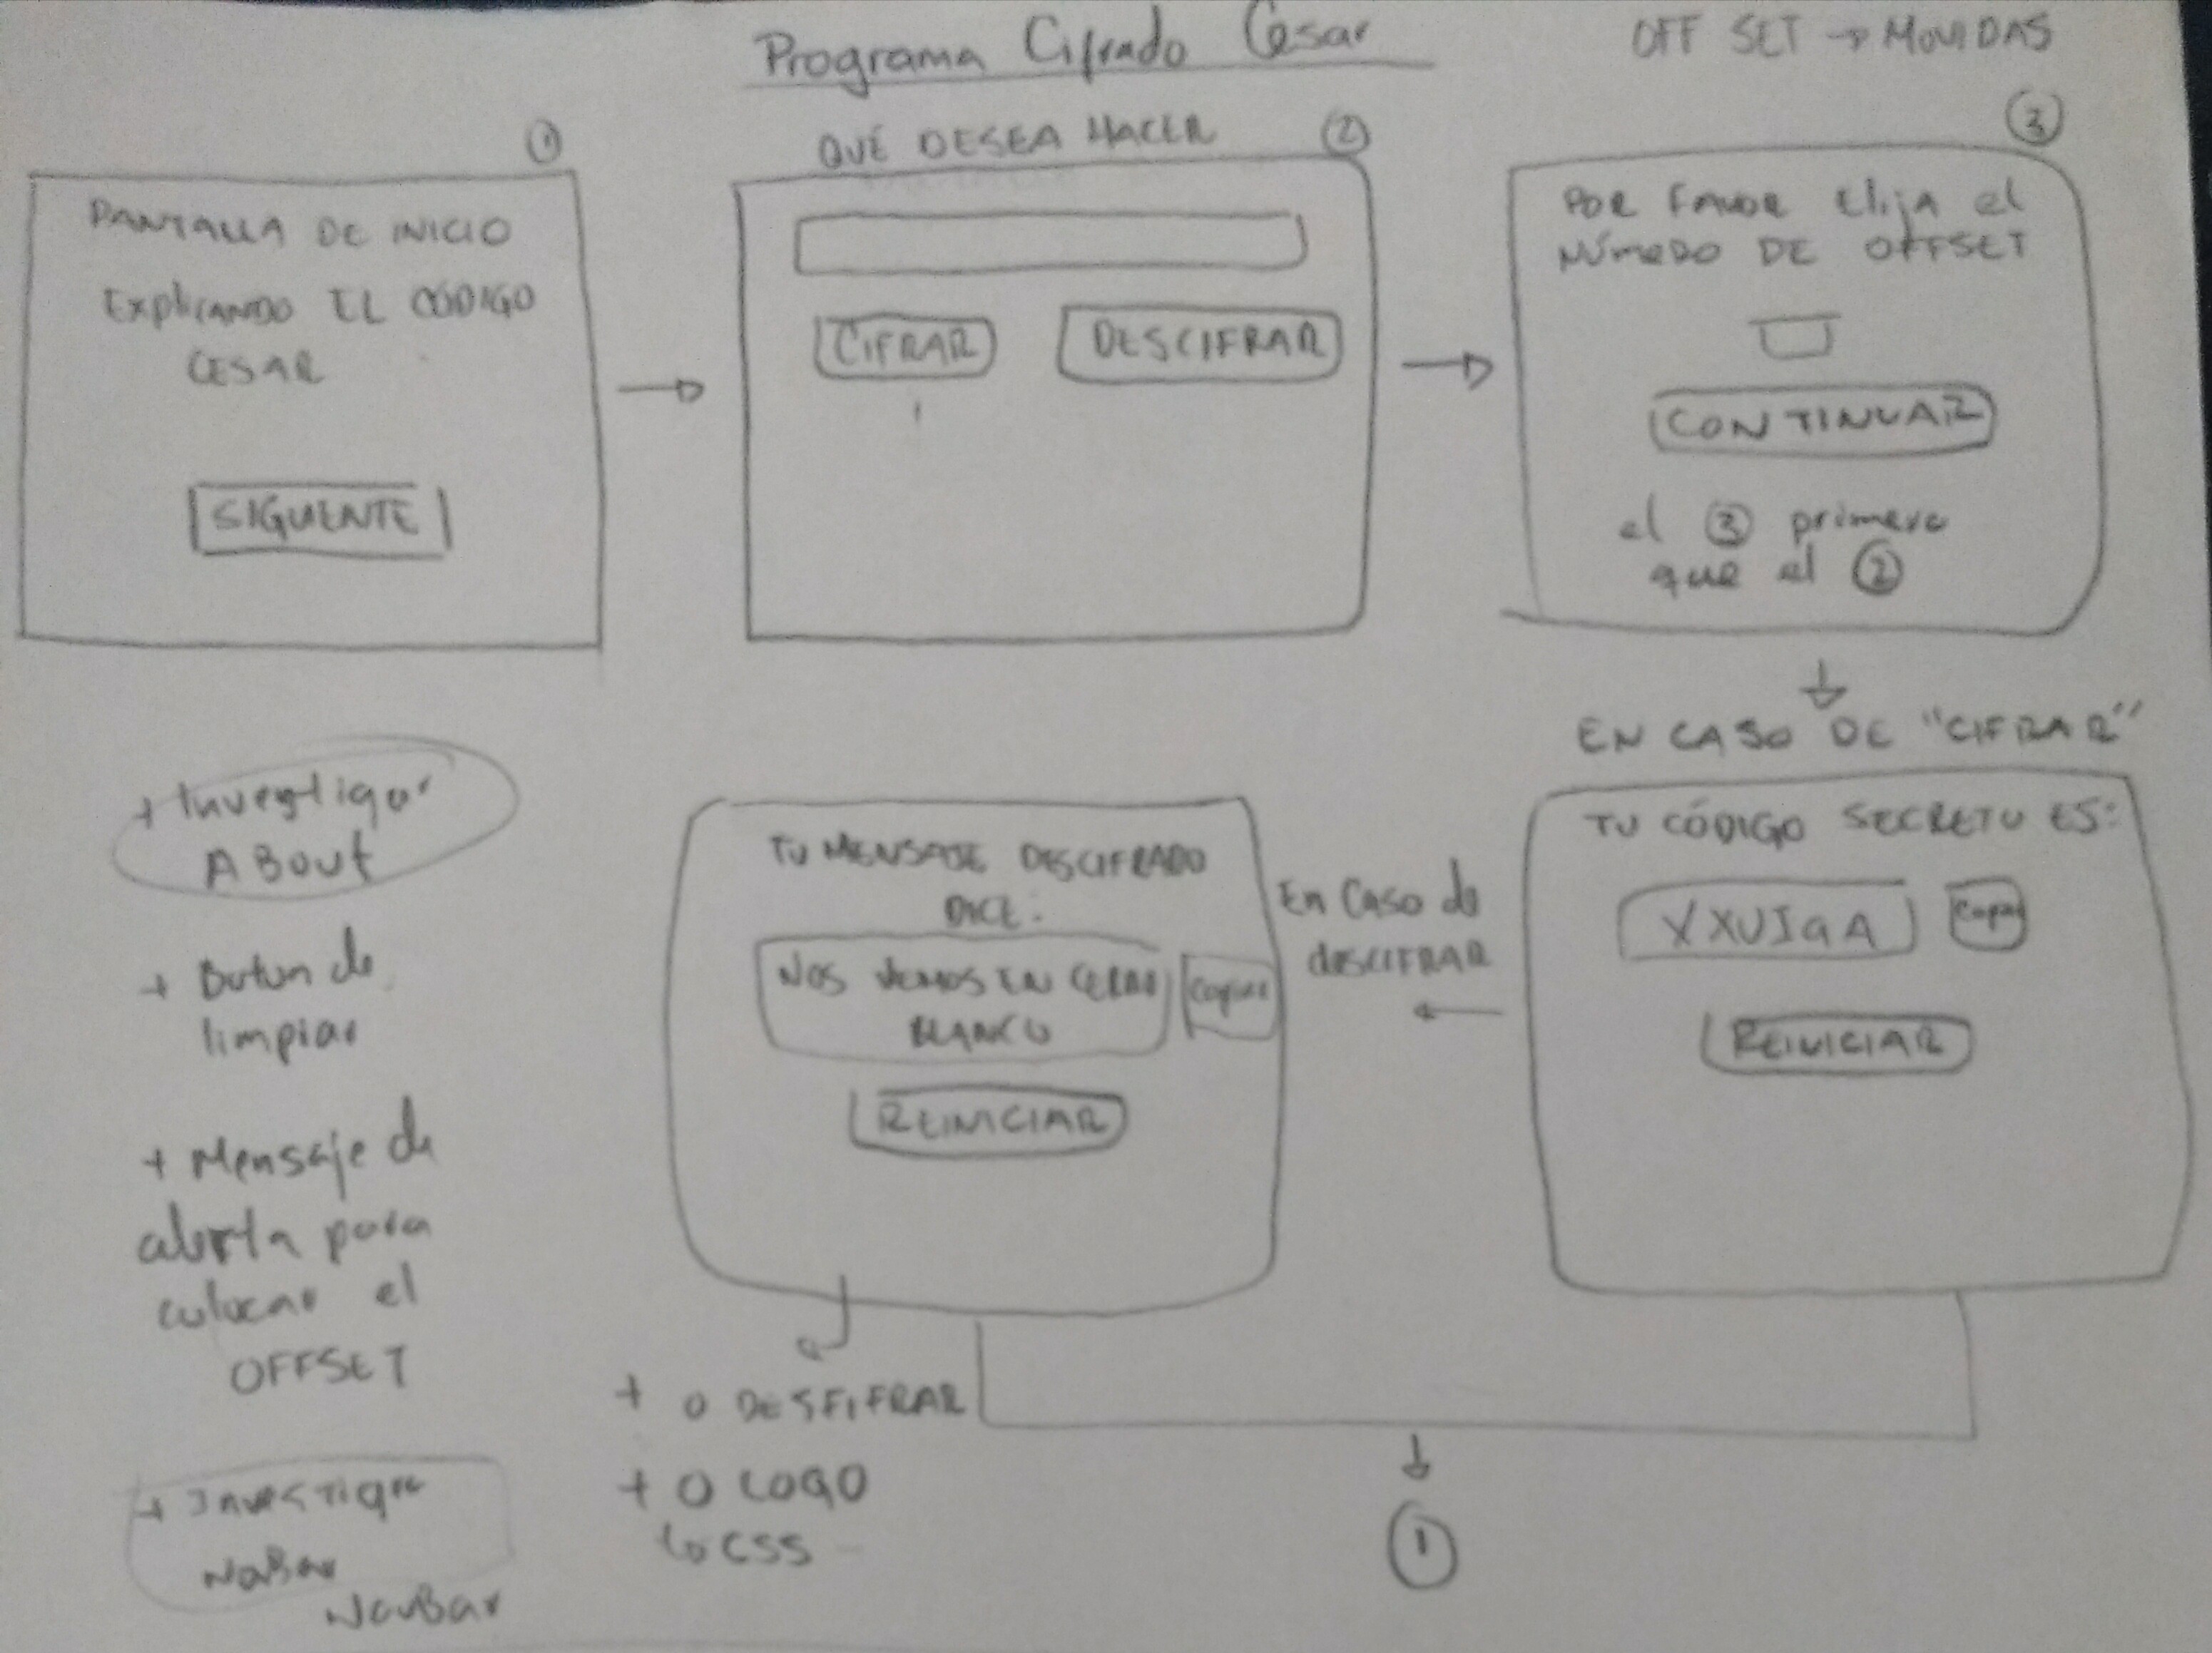 Programa Cifrado Cesar
OFF SET → MOVIDAS
①
PANTALLA DE INICIO
Explicando EL CÓDIGO
CESAR
SIGUENTE
QUÉ DESEA HACER
②
CIFRAR
DESCIFRAR
③
POR FAVOR Elija el
NÚMERO DE OFFSET
CONTINUAR
el ③ primero
que el ②
EN CASO DE "CIFRAR"
TU CÓDIGO SECRETO ES:
XXUIGA
Copiar
REINICIAR
En Caso de
desCIFRAR
TU MENSAJE DESCIFRADO
DICE:
NOS VEMOS EN CERRO
BLANCO
Copiar
REINICIAR
+ Investigar
ABout
+ Buton de
limpiar
+ Mensaje de
alerta para
colocar el
OFFSET
+ Investigar
NaBar
NavBar
+ O DESFIFRAR
+ O LOGO
↳ CSS
①